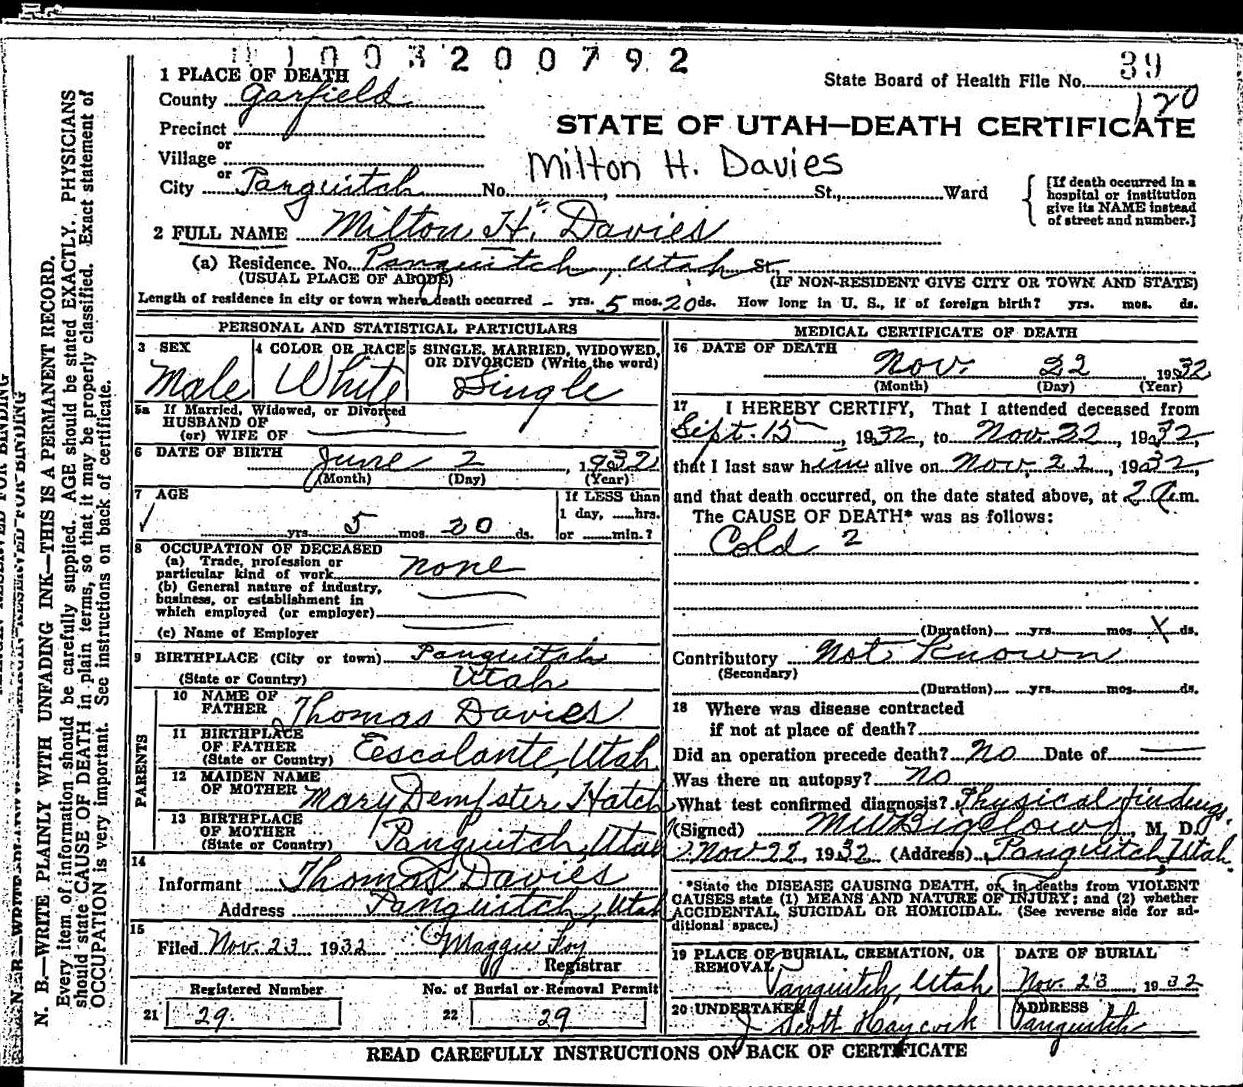 1003200792
State Board of Health File No. 39
120
STATE OF UTAH—DEATH CERTIFICATE
1 PLACE OF DEATH
County Garfield
Precinct
or
Village
or
City Panguitch No. St., Ward
Milton H. Davies
[If death occurred in a
hospital or institution
give its NAME instead
of street and number.]
2 FULL NAME Milton H. Davies
(a) Residence. No. Panguitch, Utah St.
(USUAL PLACE OF ABODE) (IF NON-RESIDENT GIVE CITY OR TOWN AND STATE)
Length of residence in city or town where death occurred - yrs. 5 mos. 20 ds. How long in U. S., if of foreign birth? yrs. mos. ds.
PERSONAL AND STATISTICAL PARTICULARS
3 SEX
Male
4 COLOR OR RACE
White
5 SINGLE, MARRIED, WIDOWED,
OR DIVORCED (Write the word)
Single
5a If Married, Widowed, or Divorced
HUSBAND OF
(or) WIFE OF
6 DATE OF BIRTH June 2, 1932
(Month) (Day) (Year)
7 AGE
yrs. 5 mos. 20 ds.
If LESS than
1 day, hrs.
or min.?
8 OCCUPATION OF DECEASED
(a) Trade, profession or
particular kind of work none
(b) General nature of industry,
business, or establishment in
which employed (or employer)
(c) Name of Employer
9 BIRTHPLACE (City or town) Panguitch
(State or Country) Utah
PARENTS
10 NAME OF
FATHER Thomas Davies
11 BIRTHPLACE
OF FATHER
(State or Country) Eescalante, Utah
12 MAIDEN NAME
OF MOTHER Mary Dempster Hatch
13 BIRTHPLACE
OF MOTHER
(State or Country) Panguitch, Utah
14
Informant Thomas Davies
Address Panguitch, Utah
15
Filed Nov. 23 1932 Maggie Foy
Registrar
Registered Number
21 29
No. of Burial or Removal Permit
22 29
MEDICAL CERTIFICATE OF DEATH
16 DATE OF DEATH
Nov. 22, 1932
(Month) (Day) (Year)
17 I HEREBY CERTIFY, That I attended deceased from
Sept. 15, 1932, to Nov. 22, 1932,
that I last saw him alive on Nov. 22, 1932,
and that death occurred, on the date stated above, at 2 a.m.
The CAUSE OF DEATH* was as follows:
Cold ?
(Duration) yrs. mos. X ds.
Contributory Not Known
(Secondary)
(Duration) yrs. mos. ds.
18 Where was disease contracted
if not at place of death?
Did an operation precede death? No Date of
Was there an autopsy? no
What test confirmed diagnosis? Physical findings.
(Signed) MW Bigelow, M. D.
Nov 22, 1932 (Address) Panguitch, Utah
*State the DISEASE CAUSING DEATH, or, in deaths from VIOLENT
CAUSES state (1) MEANS AND NATURE OF INJURY; and (2) whether
ACCIDENTAL, SUICIDAL OR HOMICIDAL. (See reverse side for ad-
ditional space.)
19 PLACE OF BURIAL, CREMATION, OR
REMOVAL
Panguitch, Utah
DATE OF BURIAL
Nov. 23, 1932
20 UNDERTAKER
J Scott Haycock
ADDRESS
Panguitch
READ CAREFULLY INSTRUCTIONS ON BACK OF CERTIFICATE
N. B.—WRITE PLAINLY WITH UNFADING INK—THIS IS A PERMANENT RECORD.
Every item of information should be carefully supplied. AGE should be stated EXACTLY. PHYSICIANS
should state CAUSE OF DEATH in plain terms, so that it may be properly classified. Exact statement of
OCCUPATION is very important. See instructions on back of certificate.